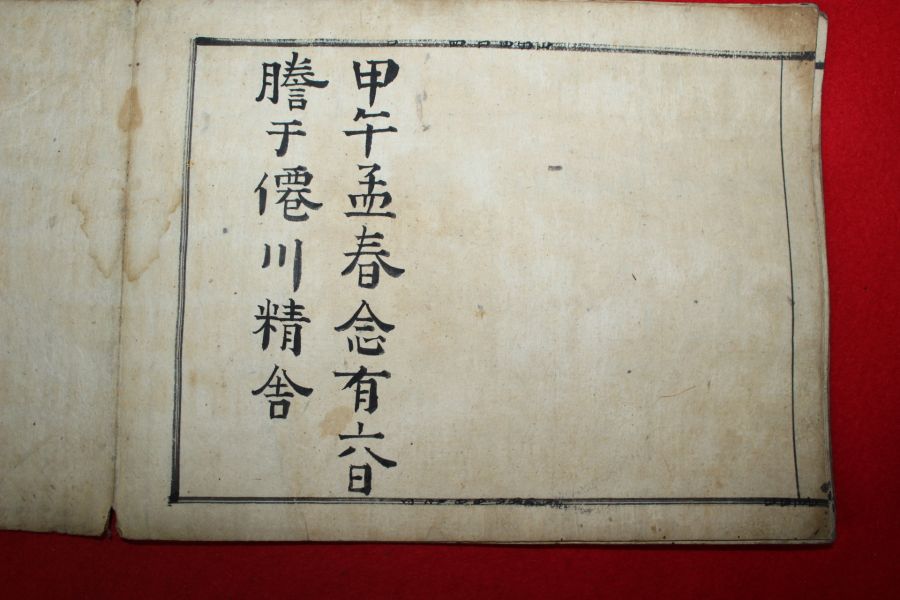 甲午孟春念有六日
謄于僊川精舍